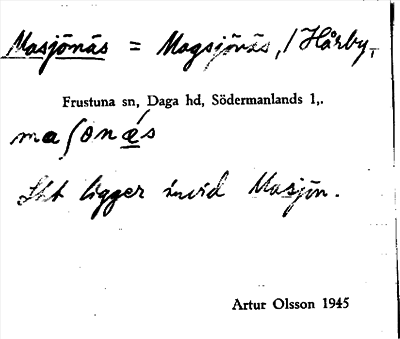 Masjönäs = Magsjönäs, / Hårby,
Frustuna sn, Daga hd, Södermanlands l,.
maʃonä́s
Sht ligger invid Masjön.
Artur Olsson 1945